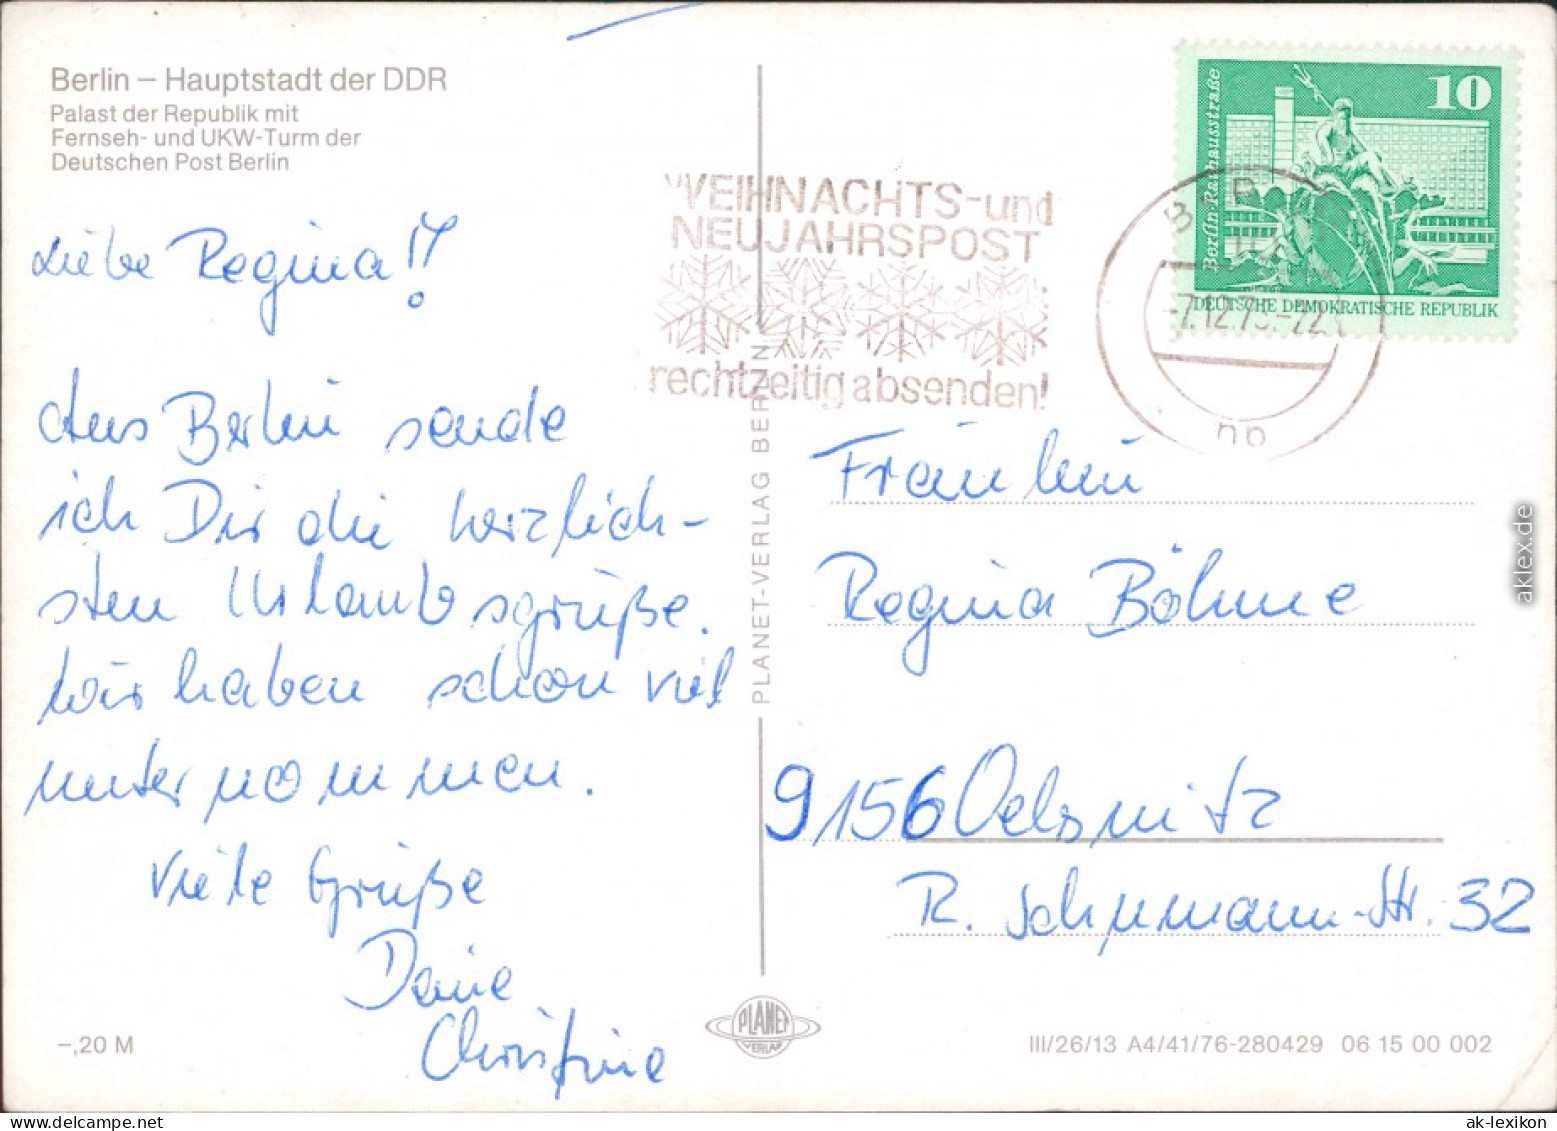 Berlin – Hauptstadt der DDR
Palast der Republik mit
Fernseh- und UKW-Turm der
Deutschen Post Berlin
Liebe Regina!!
Aus Berlin sende
ich Dir die herzlich-
sten Urlaubsgrüße.
Wir haben schon viel
unternommen.
Viele Grüße
Deine
Christine
–,20 M
PLANET-VERLAG BERLIN
PLANET
VERLAG
WEIHNACHTS-und
NEUJAHRSPOST
rechtzeitig absenden!
10
Berlin·Rathausstraße
DEUTSCHE DEMOKRATISCHE REPUBLIK
Fräulein
Regina Böhme
9156 Oelsnitz
R. Schumann-Str. 32
III/26/13 A4/41/76-280429 06 15 00 002
aklex.de
ak-lexikon